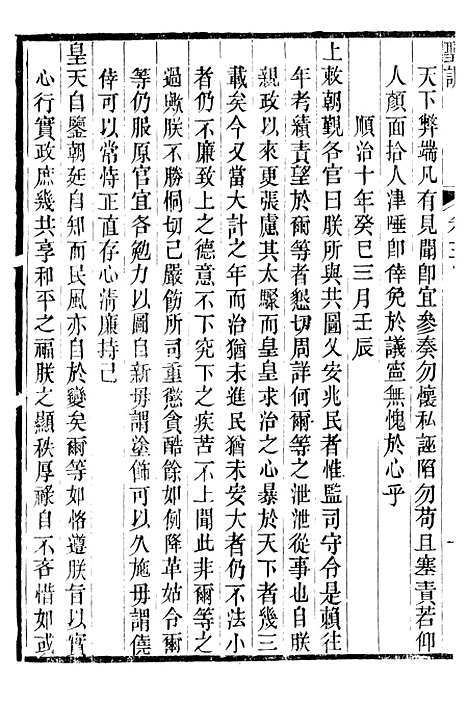 天下弊端凡有見聞卽宜參奏勿懷私誣陷勿苟且塞責若仰
人顏面拾人津唾卽倖免於議寧無愧於心乎
順治十年癸巳三月壬辰
上敕朝覲各官曰朕所與共圖乂安兆民者惟監司守令是賴往
年考績責望於爾等者懇切周詳何爾等之泄泄從事也自朕
親政以來更張慮其太驟而皇皇求治之心暴於天下者幾三
載矣今又當大計之年而治猶未進民猶未安大者仍不法小
者仍不廉致上之德意不下究下之疾苦不上聞此非爾等之
過歟朕不勝恫切已嚴飭所司重懲貪酷餘如例降革姑令爾
等仍服原官宜各勉力以圖自新毋謂塗飾可以久施毋謂僥
倖可以常恃正直存心淸廉持己
皇天自鑒朝廷自知而民風亦自於變矣爾等如恪遵朕旨以實
心行實政庶幾共享和平之福朕之顯秩厚祿自不吝惜如或